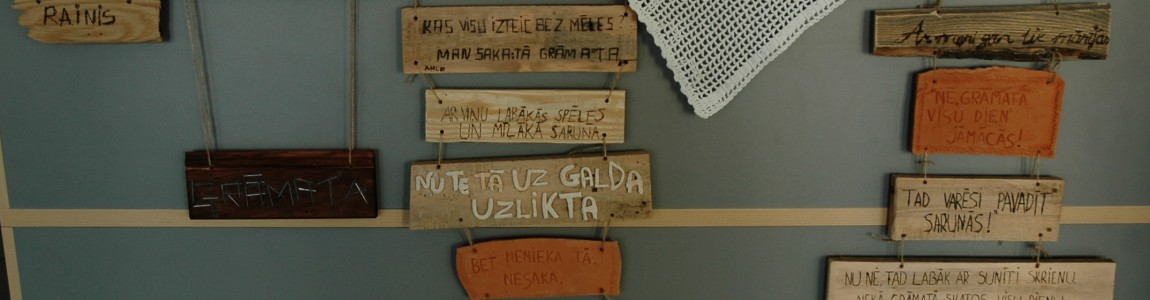 RAINIS
GRĀMATA
KAS VISU IZTEIC BEZ MĒLES
MAN SAKA: TĀ GRĀMATA.
AR VIŅU LABĀKĀS SPĒLES
UN MĪĻĀKĀ SARUNA.
NU TE TĀ UZ GALDA
UZLIKTA
BET NENIEKA TĀ
NESAKA.
Ar mani gan tie
NE, GRĀMATĀ
VISU DIEN'
JĀMĀCĀS!
TAD VARĒSI PAVADĪT
SARUNĀS!
NU NĒ, TAD LABĀK AR SUNĪTI SKRIENU,
NEKĀ GRĀMATĀ SKATOS VISU DIENU!